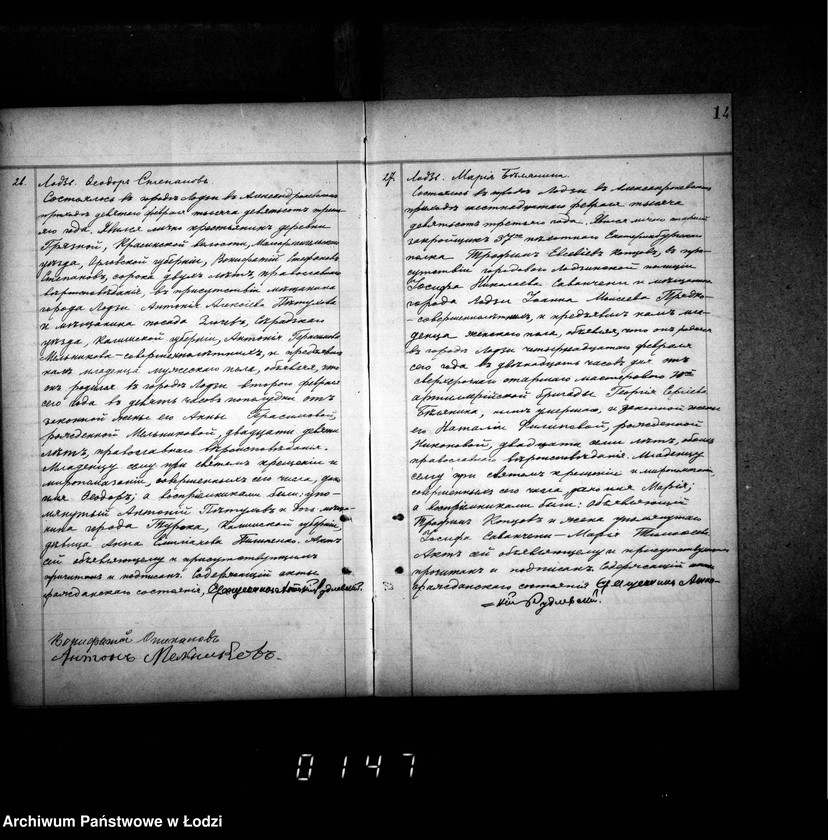 14
26. Лодзь. Ѳеодоръ Степановъ.
Состоялось въ городѣ Лодзи въ Александровскомъ
приходѣ девятаго февраля тысяча девятьсотъ треть-
яго года. Явился лично крестьянинъ деревни
Грязной, волости,
уѣзда, Орловской губерніи, Вонифатій
Степановъ, сорока двухъ лѣтъ, православнаго
вѣроисповѣданія, въ присутствіи мѣщанина
города Лодзи Антонія Алексѣева
и мѣщанина посада Сѣрадскаго
уѣзда, Калишской губерніи, Антонія Герасимова
Мельникова – совершеннолѣтнихъ, и предъявилъ
намъ младенца мужескаго пола, объявляя, что
онъ родился въ городѣ Лодзи второго февраля
сего года въ девять часовъ пополудни отъ
законной жены его Анны Герасимовой,
рожденной Мельниковой, двадцати девяти
лѣтъ, православнаго вѣроисповѣданія.
Младенцу сему при святомъ крещеніи и
миропомазаніи, совершенныхъ сего числа, дано
имя Ѳеодоръ; а воспріемниками были: упо-
мянутый Антоній и дочь мѣща-
нина города Турека, Калишской губерніи,
дѣвица Анна Актъ
сей объявляющему и присутствующимъ
прочитанъ и подписанъ. Содержащій акты
гражданскаго состоянія, Священникъ Рудлевскій.
Вонифатій Степановъ
Антонъ Мельниковъ.
27. Лодзь. Марія Бѣлянина.
Состоялось въ городѣ Лодзи въ Александровскомъ
приходѣ шестнадцатаго февраля тысяча
девятьсотъ третьяго года. Явился лично старшій
закройщикъ 37го пѣхотнаго Екатеринбургскаго
полка Трофимъ Концовъ, въ при-
сутствіи городового Лодзинской полиціи
Іосифа Николаева Савончени и мѣщанина
города Лодзи Іоанна Моисеева
совершеннолѣтнихъ, и предъявилъ намъ мла-
денца женскаго пола, объявляя, что онъ родился
въ городѣ Лодзи четырнадцатаго февраля
сего года въ двѣнадцать часовъ дня отъ
сверхсрочнаго старшаго мастерового 10й
артиллерійской бригады Георгія Сергѣева
Бѣлянина, нынѣ умершаго, и законной жены
его Наталіи Филиповой, рожденной
Никоновой, двадцати семи лѣтъ, обоихъ
православнаго вѣроисповѣданія. Младенцу
сему при святомъ крещеніи и миропомазаніи,
совершенныхъ сего числа дано имя Марія;
а воспріемниками были: объявляющій
Трофимъ Концовъ и жена упомянутаго
Іосифа Савончени – Марія Тимофеева.
Актъ сей объявляющему и присутствующимъ
прочитанъ и подписанъ. Содержащій акты
гражданскаго состоянія Священникъ Анто-
ній Рудлевскій.
0147
Archiwum Państwowe w Łodzi